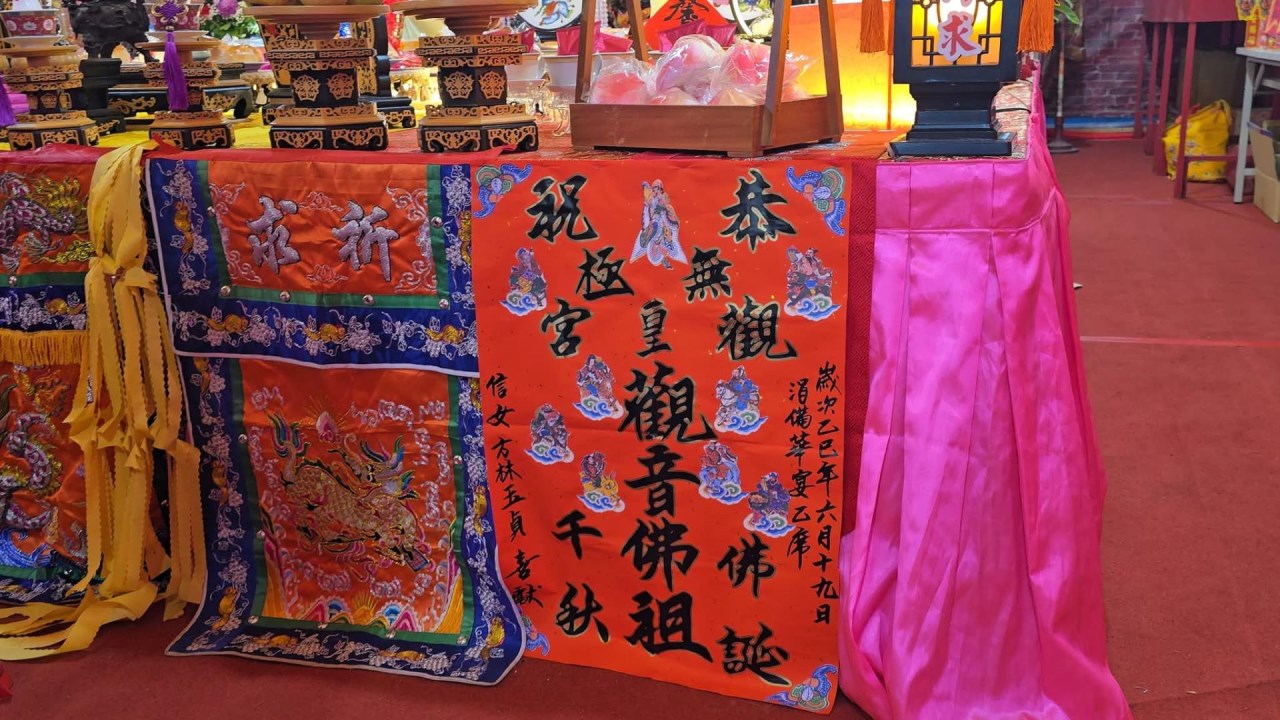 恭祝
無極
觀皇宮
觀音佛祖
佛誕
千秋
歲次乙巳年六月十九日
涓備華宴乙席
信女 方林玉貞 喜獻
祈求
求